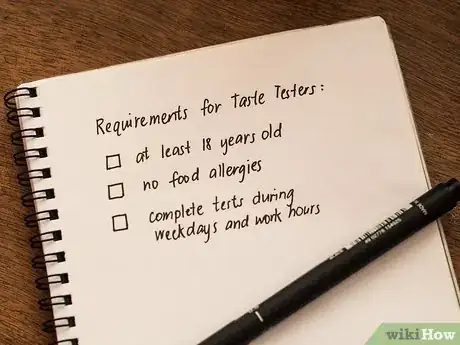 Requirements for Taste Testers:
at least 18 years old
no food allergies
complete tests during
weekdays and work hours
wikiHow